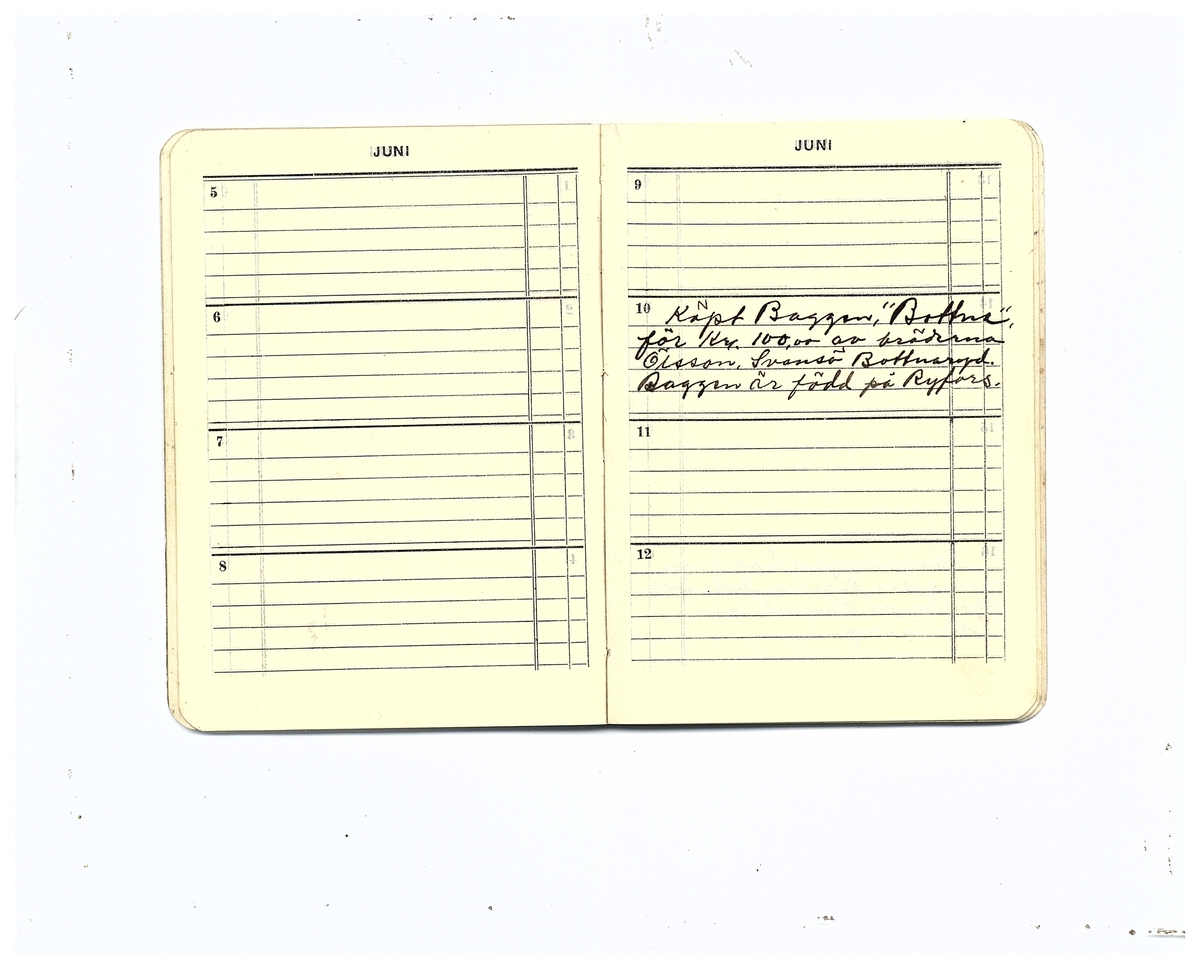 JUNI
5
6
7
8
JUNI
9
10 Köpt Baggen, "Bottna",
för Kr. 100,00 av bröderna
Olsson, Svansö Bottnaryd.
Baggen är född på Ryfors.
11
12